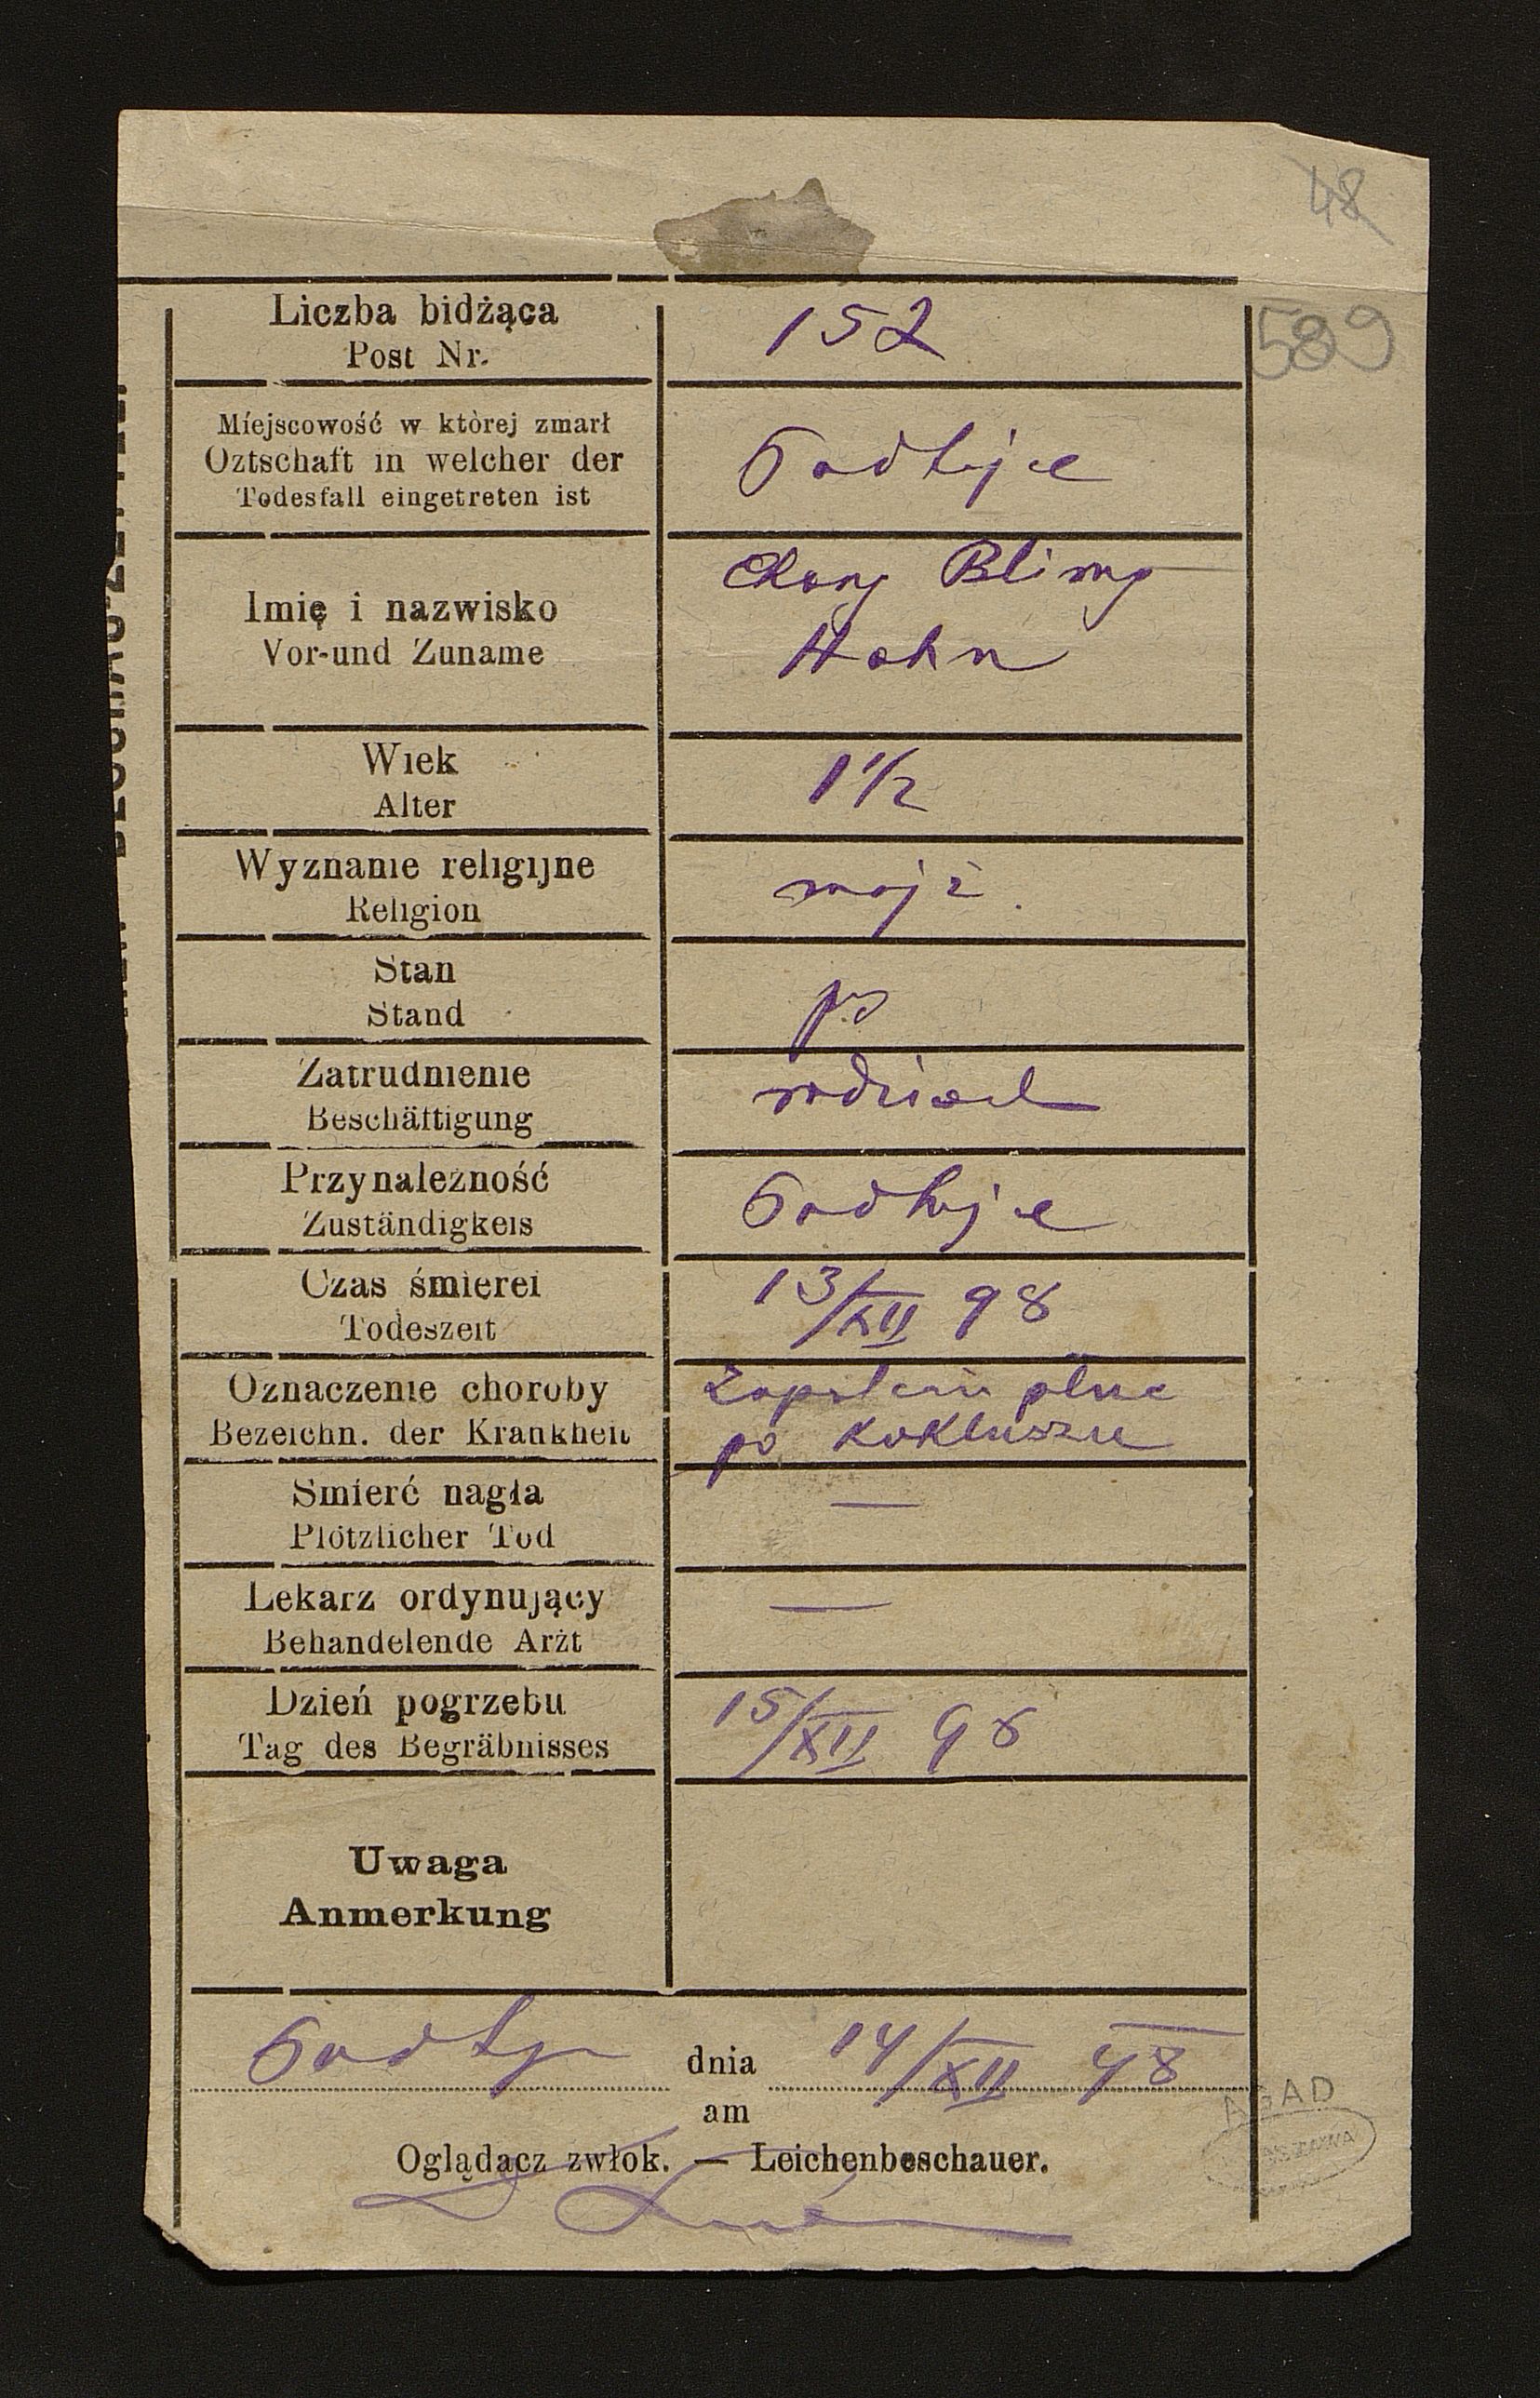 48
589
Liczba bidżąca
Post Nr.
152
Miejscowość w której zmarł
Oztschaft in welcher der
Todesfall eingetreten ist
Imię i nazwisko
Vor-und Zuname
Hahn
Wiek
Alter
1 1/2
Wyznanie religijne
Religion
mojż.
Stan
Stand
Zatrudnienie
Beschäftigung
Przynależność
Zuständigkeis
Czas śmierei
Todeszeit
13/XII 98
Oznaczenie choroby
Bezeichn. der Krankheit
Zapaleni płuc
po kokluszu
Smierć nagła
Plötzlicher Tod
—
Lekarz ordynujący
Behandelende Arżt
—
Dzień pogrzebu
Tag des Begräbnisses
15/XII 98
Uwaga
Anmerkung
dnia 14/XII 98
am
Oglądacz zwłok. — Leichenbeschauer.
AGAD